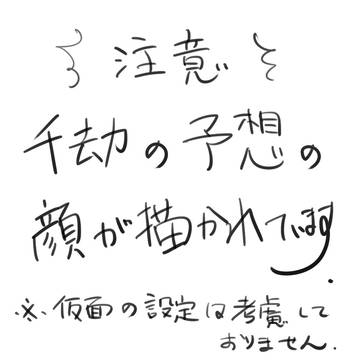 注意
千劫の予想の
顔が描かれています.
※仮面の設定は考慮して
おりません.